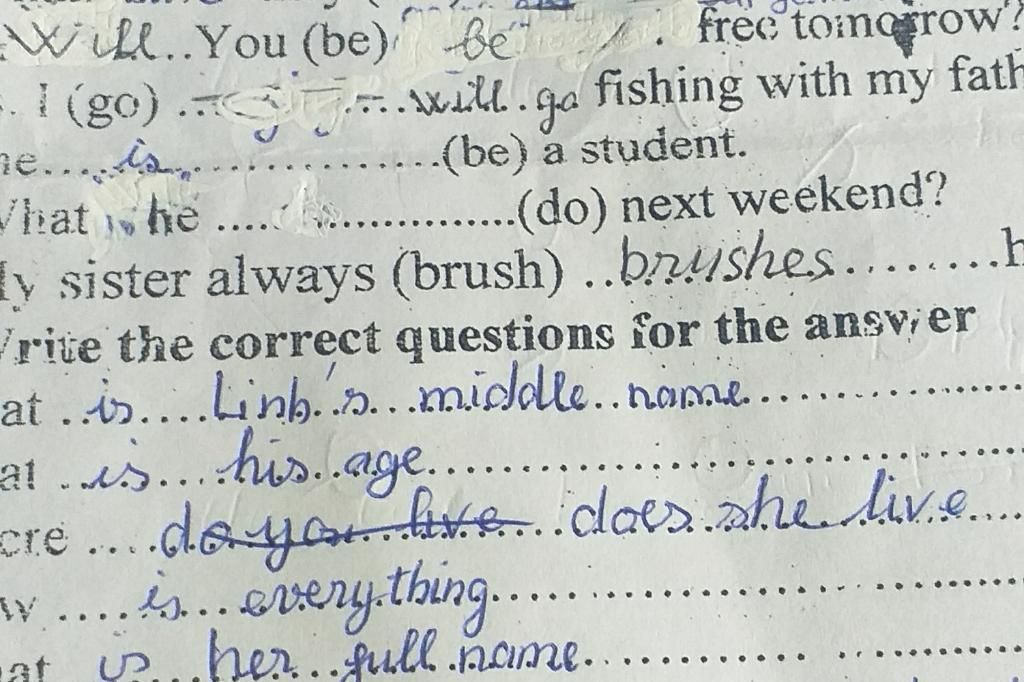 Will..You (be) be . free tomorrow?
. I (go) ............will..go fishing with my fath
he.....is...................(be) a student.
What is he .......................(do) next weekend?
My sister always (brush) ..brushes.........h
Write the correct questions for the answer
at ..is....Linh's...middle..name................
at ..is....his..age................................
ere ....do you live...does..she live....
w ....is...everything...............................
at is her...full.name..............................